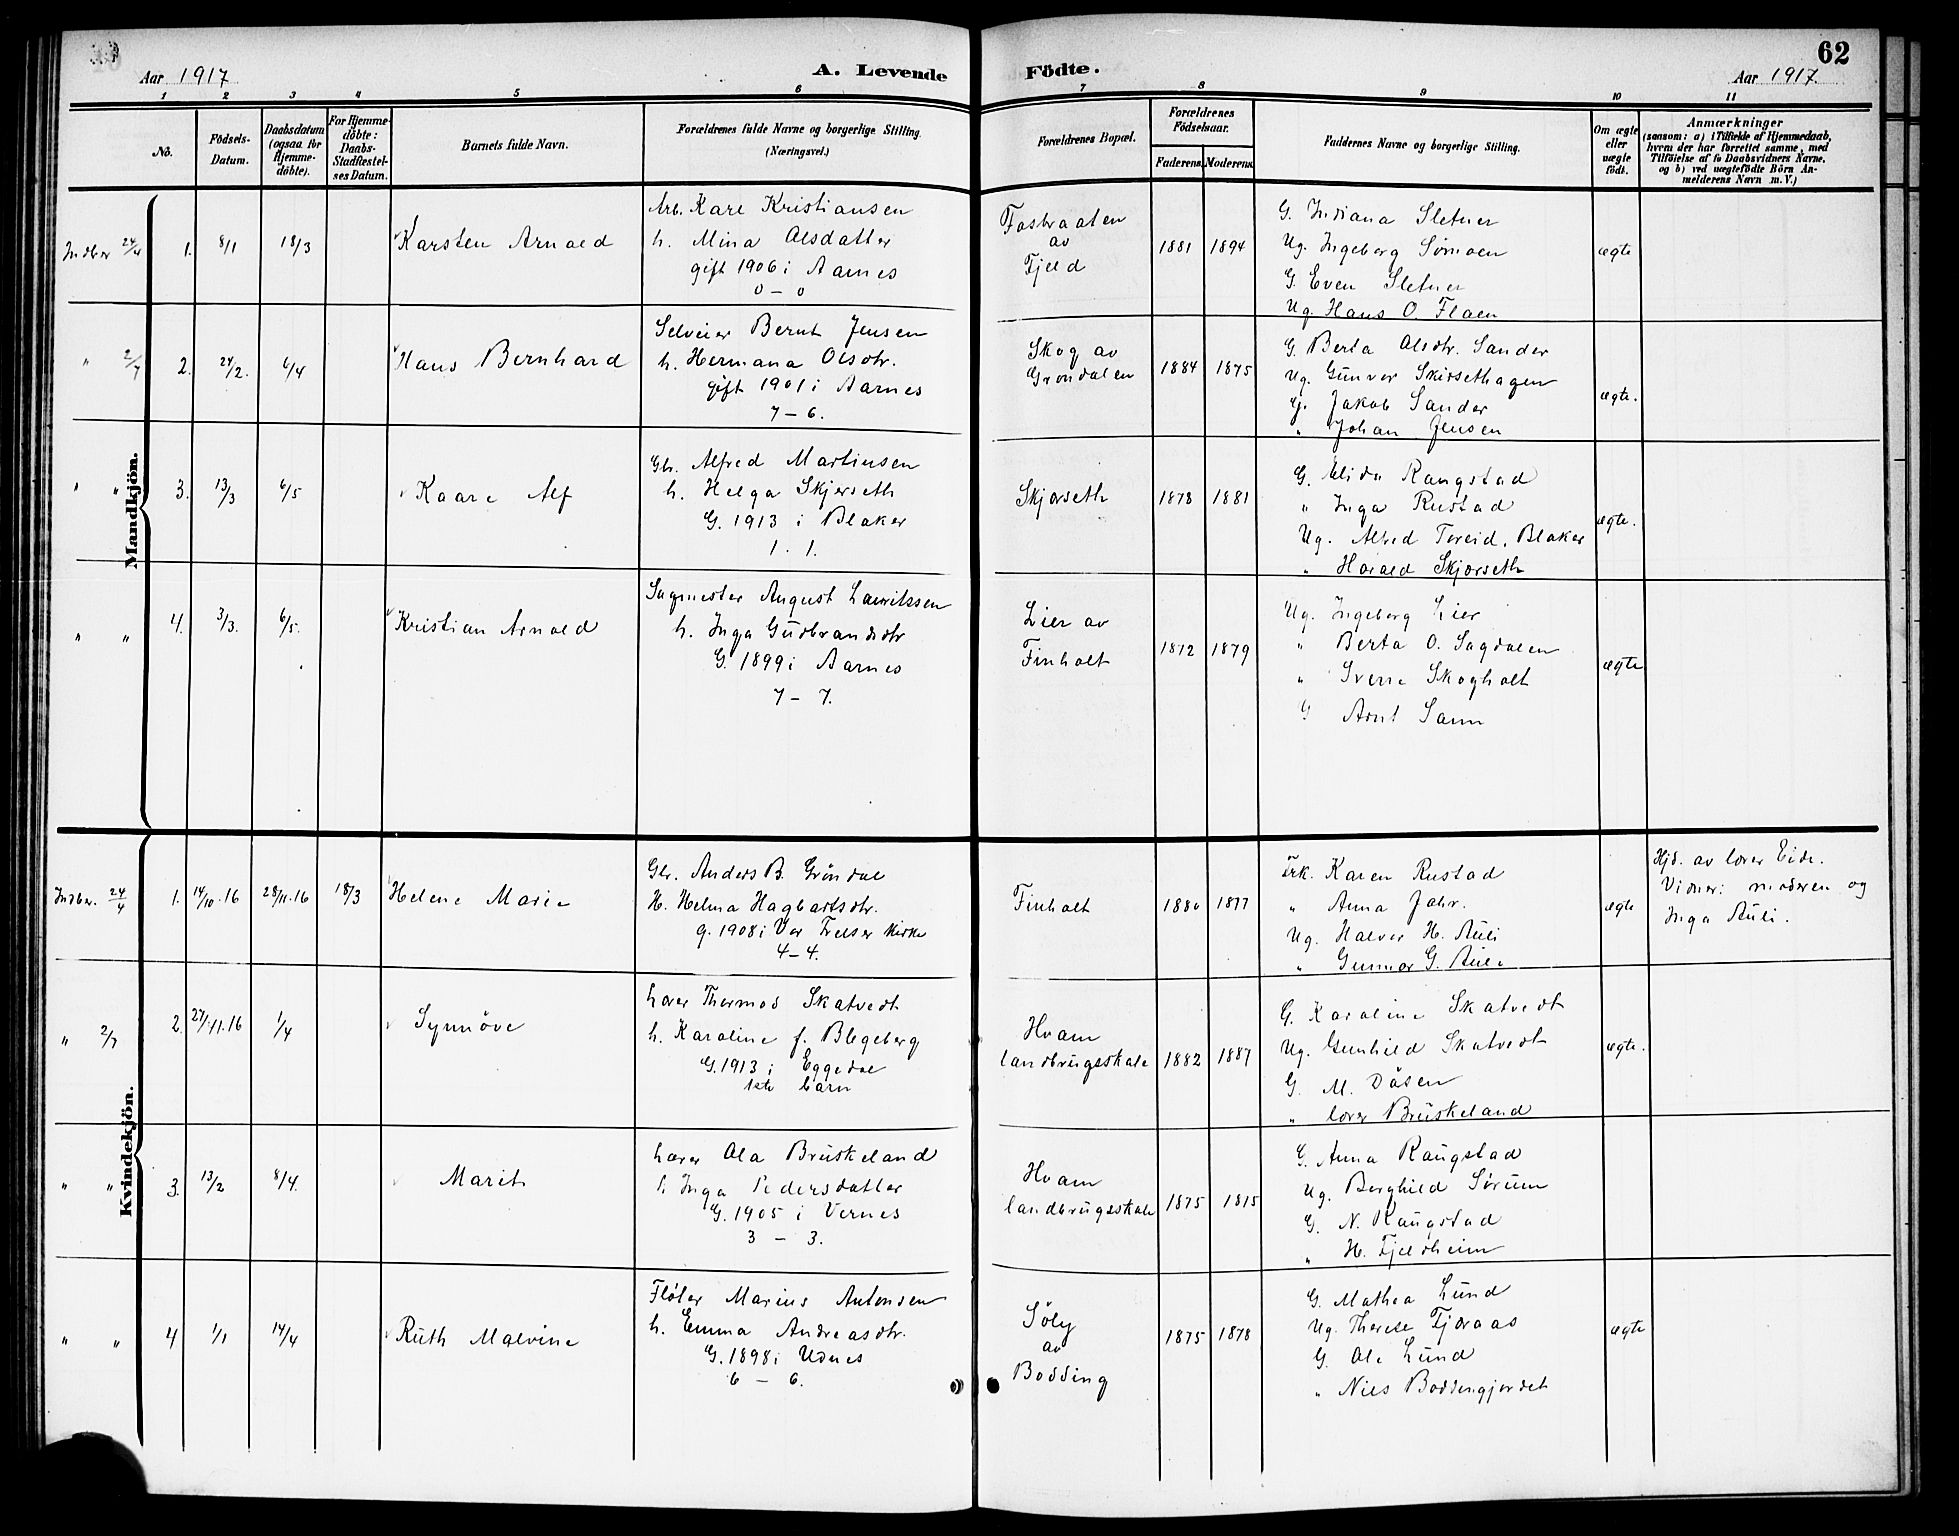 62
Aar 1917
A. Levende Födte.
Aar 1917.
1 2 3 4 5 6 7 8 9 10 11
No.
Födsels-Datum.
Daabsdatum (ogsaa for Hjemme-döbte).
For Hjemme-döbte: Daabs-Stadfæstel-ses Datum.
Barnets fulde Navn.
Forældrenes fulde Navne og borgerlige Stilling. (Næringsvei.)
Forældrenes Bopæl.
Forældrenes Födselsaar.
Faderens. Moderens.
Faddernes Navne og borgerlige Stilling.
Om ægte eller uægte födt.
Anmærkninger
(saasom: a) i Tilfælde af Hjemmedaab, hvem der har forrettet samme, med Tilföielse af to Daabsvidners Navne, og b) ved uægtefödte Börn An-melderens Navn m. V.)
Mandkjön.
Indber 24/4 1. 8/1 18/3
Karsten Arnold
Arb. Karl Kristiansen
h. Mina Olsdatter
gift 1906 i Aarnes
0 – 0
Fosbraaten
av
Fjeld
1881 1894
G. Indiana Sletner
Ug. Ingeborg Sørmoen
G. Even Sletner
Ug. Hans O. Flaen
ægte
" 2/7 2. 24/2. 6/4
Hans Bernhard
Selveier Bernt Jensen
h. Hermana Olsdtr.
gift 1901 i Aarnes
7 – 6.
Skog av
Grøndalen
1884 1875
G. Berta Olsdtr. Sander
Ug. Gunvor Skirsethagen
G. Jakob Sander
" Johan Jensen
ægte.
" " 3. 13/3 6/5
Kaare Alf
Gbr. Alfred Martinsen
h. Helga Skjerseth
G. 1913 i Blaker
1. 1.
Skjørseth
1878 1881
G. Elida Rangstad
" Inga Rustad
Ug. Alfred Toreid, Blaker
" Harald Skjørseth
ægte.
" " 4. 3/3. 6/5.
Kristian Arnold
Sagmester August Lauritssen
h. Inga Gudbrandsdtr
G. 1899 i Aarnes
7 – 7.
Lier av
Finholt
1872 1879
Ug. Ingeborg Lier
" Berta O. Sagdalen
" Sverre Skogholt
G Arnt Sann
ægte
Kvindekjön.
Indber. 24/4 1. 14/10.16 28/11.16 18/3
Helene Marie
Gbr. Anders B. Grøndal
H. Helma Hagbartsdtr.
g. 1908 i Vor Frelser kirke
4 – 4.
Finholt
1880 1877
Frk. Karen Rustad
" Anna Jahr.
Ug. Halvor H. Auli
" Gunnar G. Auli
ægte
Hjd. av lærer Eide.
Vidner: moderen og
Inga Auli.
" 2/7 2. 27/11.16 1/4
Synnöve
Lærer Thormod Skatvedt
h. Karoline f. Blegeberg
G. 1913 i Eggedal
1ste barn
Hvam
landbrugsskole
1882 1887
G. Karoline Skatvedt
Ug. Gunhild Skatvedt
G. M. Dösen
" lærer Bruskeland
ægte.
" " 3. 13/2 8/4.
Marit
Lærer Ola Bruskeland
h. Inga Pedersdatter
G. 1905 i Vernes
3 – 3.
Hvam
landbrugsskole
1875 1815
G. Anna Raugstad
Ug. Borghild Sørum
G. N. Raugstad
" H. Fjeldheim
" " 4 1/1 14/4
Ruth Malvine
Fløter Marius Antonsen
h. Emma Andreasdtr.
G. 1898 i Udnes
6 – 6.
Söly
av
Bodding
1875 1878
G. Mathea Lund
Ug. Therese Fjøraas
G. Ole Lund
" Nils Boddingjordet
ægte